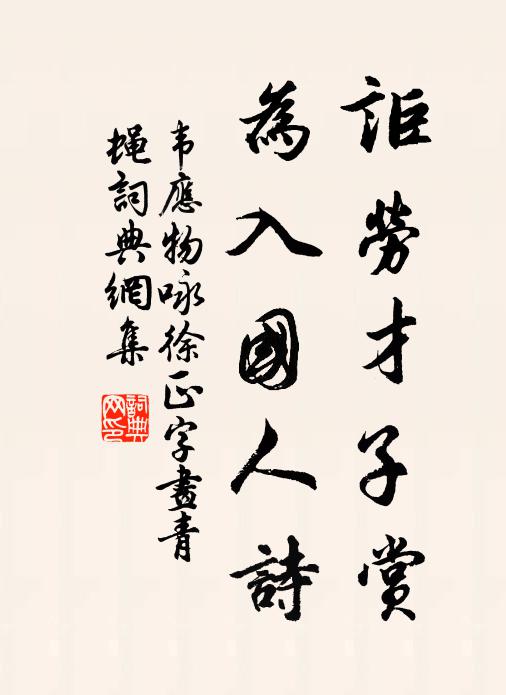 詎勞才子賞
為入國人詩
韦應物咏徐正字畫青
蝇詞典網集
詞典
网印